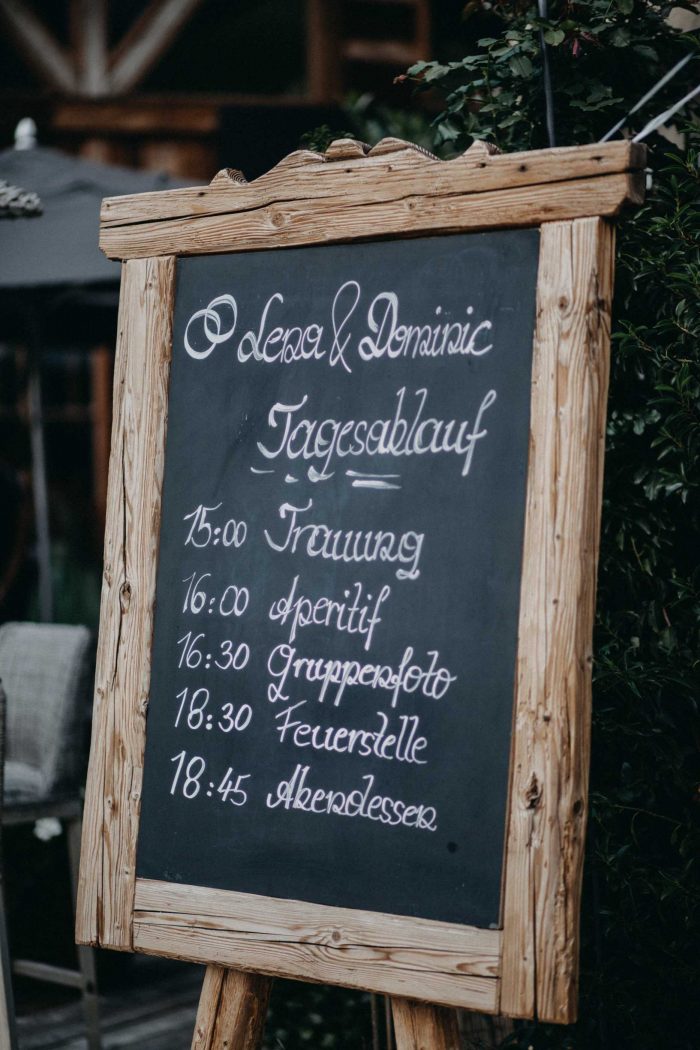 Lena & Dominic
Tagesablauf
15:00 Trauung
16:00 Aperitif
16:30 Gruppenfoto
18:30 Feuerstelle
18:45 Abendessen